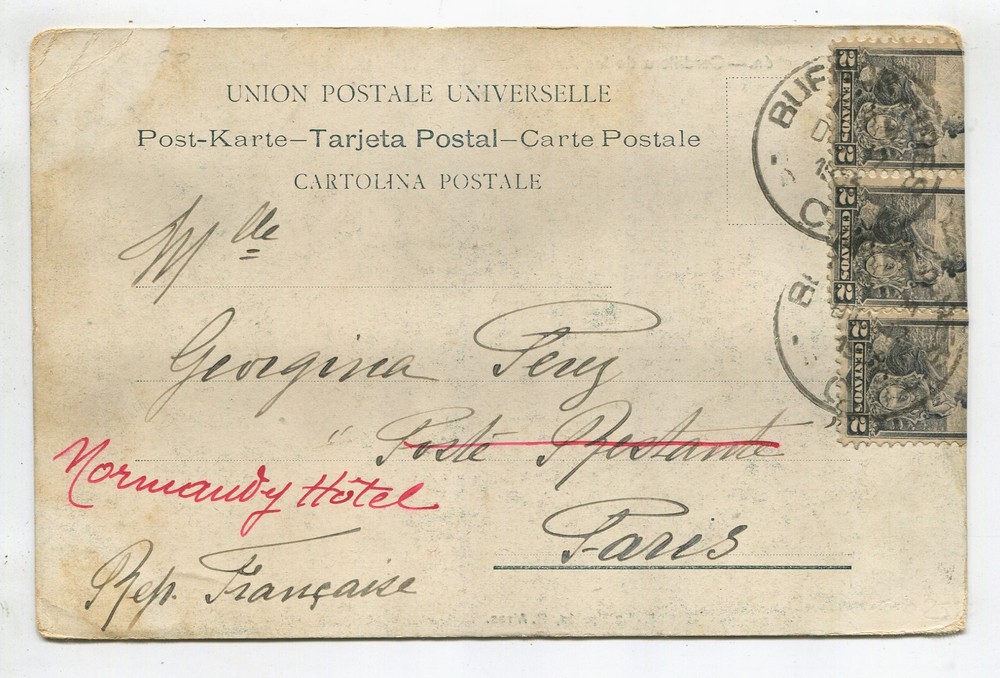 UNION POSTALE UNIVERSELLE
Post-Karte–Tarjeta Postal–Carte Postale
CARTOLINA POSTALE
Mlle
Georgina Perez
" Poste Restante
Normandy Hôtel
Paris
Rep. Française
2 CENTAVOS 2
2 CENTAVOS 2
2 CENTAVOS 2